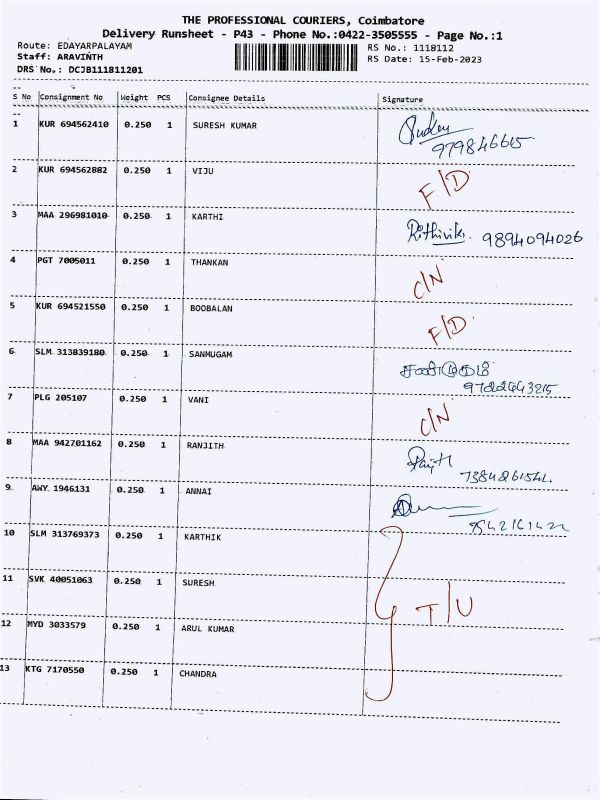 THE PROFESSIONAL COURIERS, Coimbatore
Delivery Runsheet - P43 - Phone No.:0422-3505555 - Page No.:1
Route: EDAYARPALAYAM RS No.: 1118112
Staff: ARAVINTH RS Date: 15-Feb-2023
DRS No.: DCJB111811201
S No Consignment No Weight PCS Consignee Details Signature
1 KUR 694562410 0.250 1 SURESH KUMAR
979846615
2 KUR 694562882 0.250 1 VIJU F/D
3 MAA 296981010 0.250 1 KARTHI Rithivik. 9894094026
4 PGT 7005011 0.250 1 THANKAN C/N
5 KUR 694521550 0.250 1 BOOBALAN F/D
6 SLM 313839180 0.250 1 SANMUGAM சண்முகம்
7 PLG 205107 0.250 1 VANI C/N
8 MAA 942701162 0.250 1 RANJITH
9 AWY 1946131 0.250 1 ANNAI
10 SLM 313769373 0.250 1 KARTHIK
11 SVK 40051063 0.250 1 SURESH T/U
12 MYD 3033579 0.250 1 ARUL KUMAR
13 KTG 7170550 0.250 1 CHANDRA